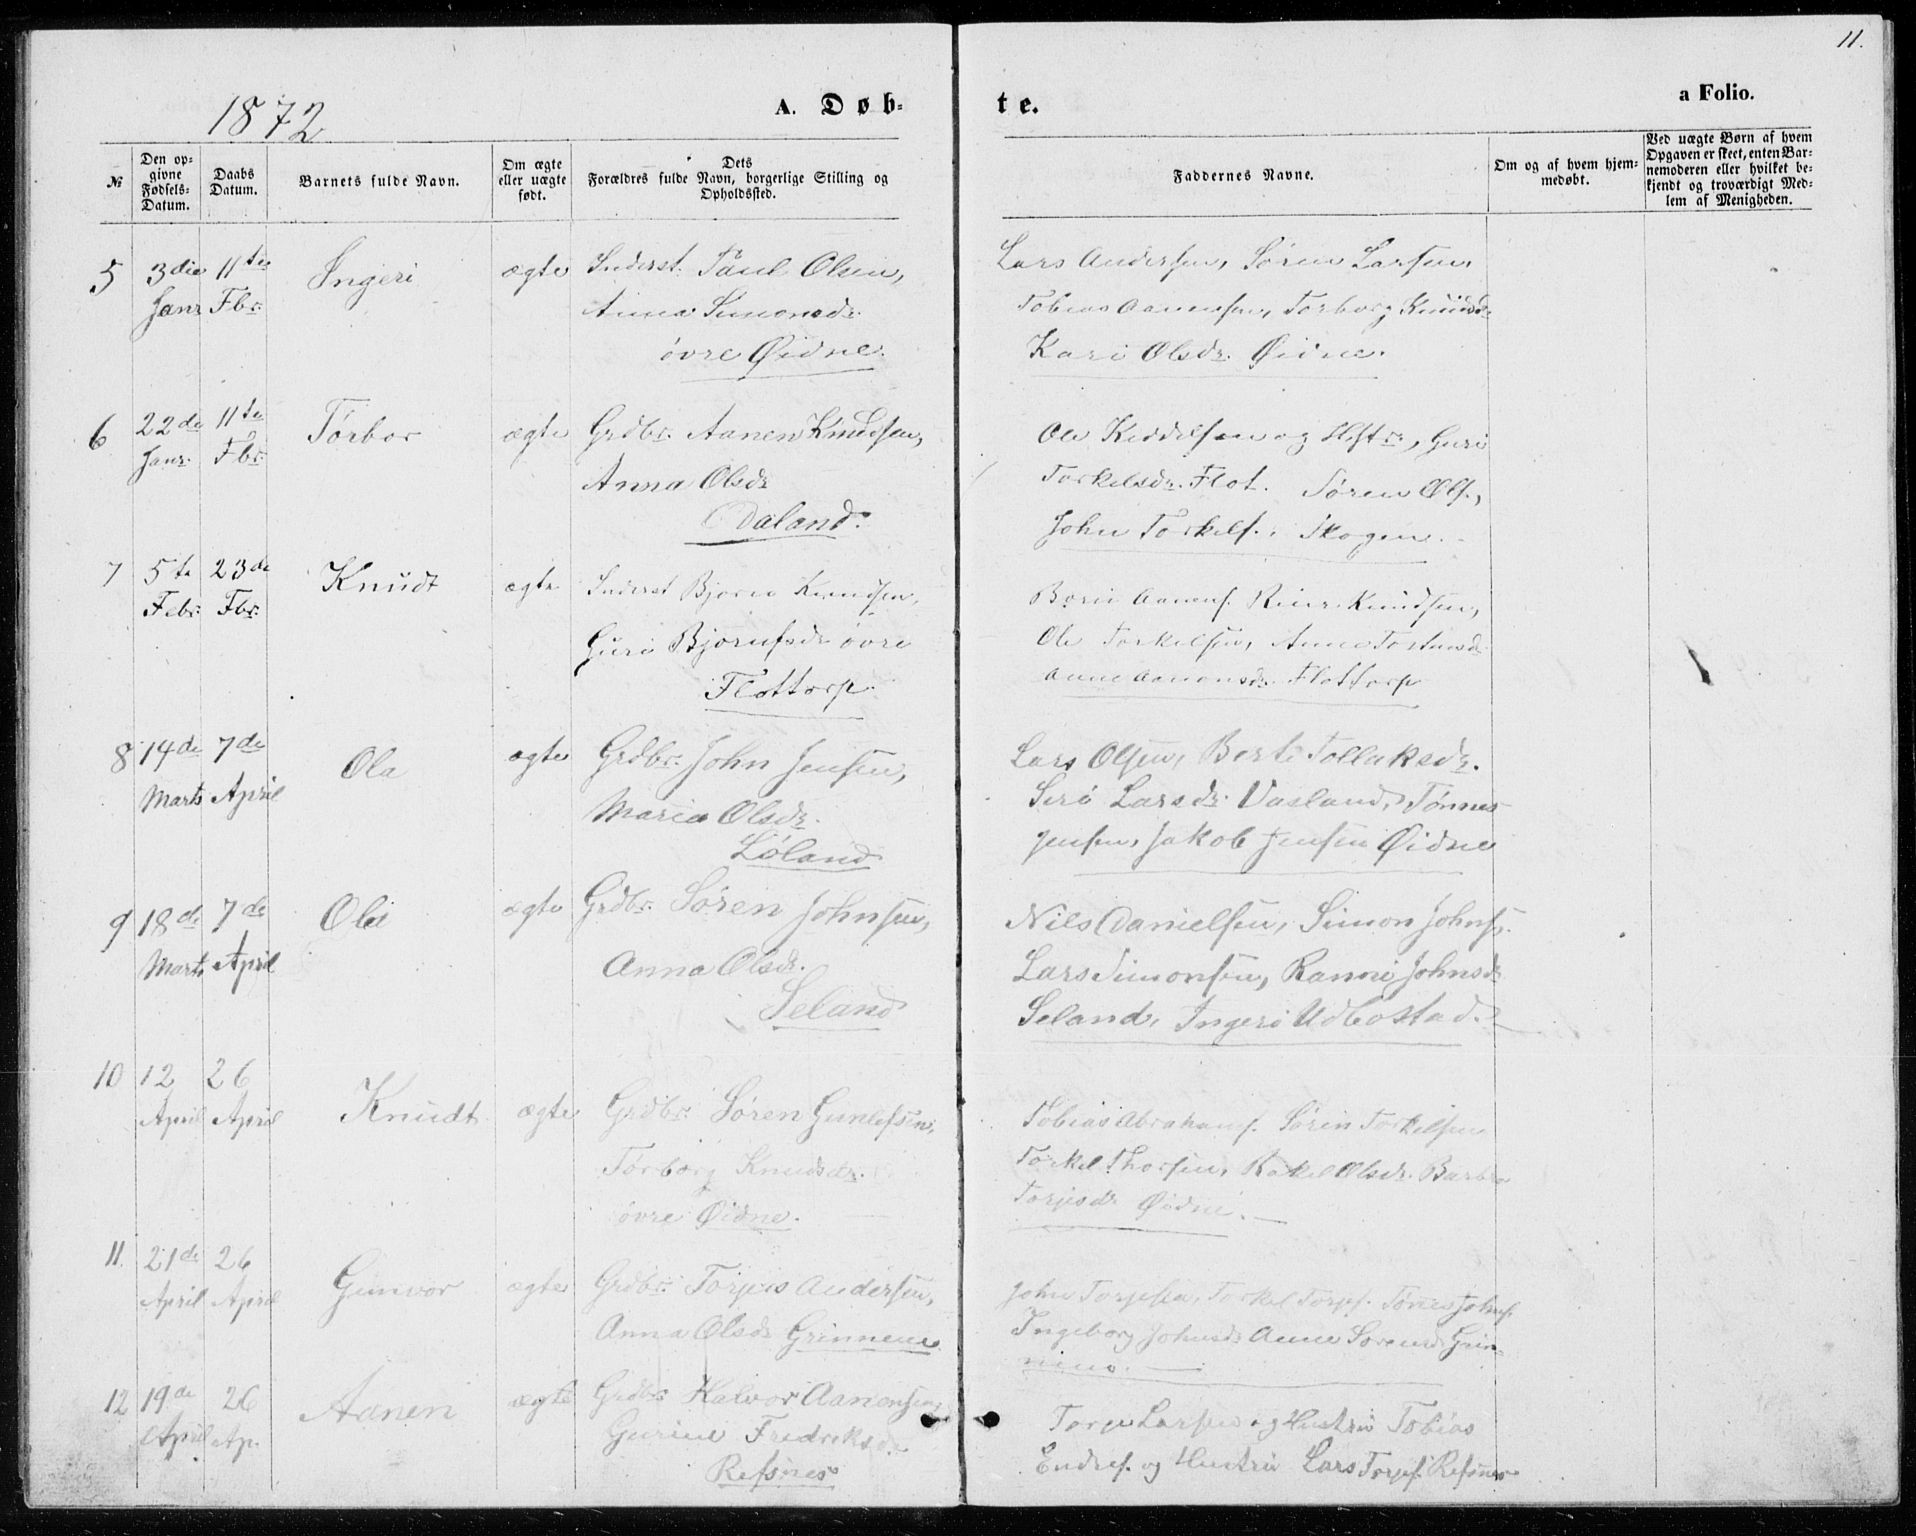 11.
1872
A. Døb-
te.
a Folio.
№
Den op-
givne
Fødsels-
Datum.
Daabs
Datum.
Barnets fulde Navn.
Om ægte
eller uægte
født.
Dets
Forældres fulde Navn, borgerlige Stilling og
Opholdssted.
Faddernes Navne.
Om og af hvem hjem-
medøbt.
Ved uægte Børn af hvem
Opgaven er skeet, enten Bar-
nemoderen eller hvilket be-
kjendt og troværdigt Med-
lem af Menigheden.
5
3die
Janr
11te
Fbr.
Ingeri
ægte
Inderst. Paul Olsen,
Anna Simonsdr.
øvre Øidne.
Lars Andersen, Søren Larsen,
Tobias Aanensen, Torborg Knudsdr
Kari Olsdr. Øidne.
6
22de
Janr.
11te
Fbr.
Tørbor
ægte
Grdbr. Aanen Knudsen,
Anna Olsdr
Daland.
Ole Keddelsen og Hstr., Guri
Torkelsdr. Flot. Søren Ols.,
John Torkels. Skogen.
7
5te
Febr.
23de
Fbr.
Knudt
ægte
Inderst Bjorn Knudsen,
Guri Bjorufsdr øvre
Flottorp.
Aanens. Knudsen,
Ole Torkelsen, Anne
Anne Aanonsdr. Flottorp
8
14de
Marts
7de
April
Ola
ægte
Grdbr. John Jensen,
Maria Olsdr.
Løland
Lars Olsen, Berte Tollaksdr.
Siri Larsdr. Vasland, Tønnes
Jensen, Jakob Jensen Øidne
9
18de
Marts
7de
April
Ola
ægte
Grdbr. Søren Johnsen,
Anna Olsdr.
Seland
Nils Danielsen, Simon Johns.
Lars Simonsen, Rannei Johnsdr
Seland, Ingeri Udbostad.
10
12
April
26
April
Knudt
ægte
Grdbr. Søren Gunlefsen,
Torborg Knudsdr.
øvre Øidne.
Tobias Abrahams. Sørin Torkilsen
Torkel Thorsen, Rakel Olsdr. Barbro
Torjesdr. Øidne.
11.
21de
April
26
April
Gunvor
ægte
Grdbr. Torjers Andersen,
Anna Olsdr Grinnene
John Torjesen, Torkel Torjes. Tønes Johns.
Ingeborg Johnsdr Anne Sorensd. Grin-
nene.
12
19de
April
26
Ap.
Aanen
ægte
Grdbr. Halvor Aanensen,
Gurine Fredriksdr.
Refsnes
Torje Larsen og Hustru Tobias
Endres. og Hustru Lars Torjes. Refsnes